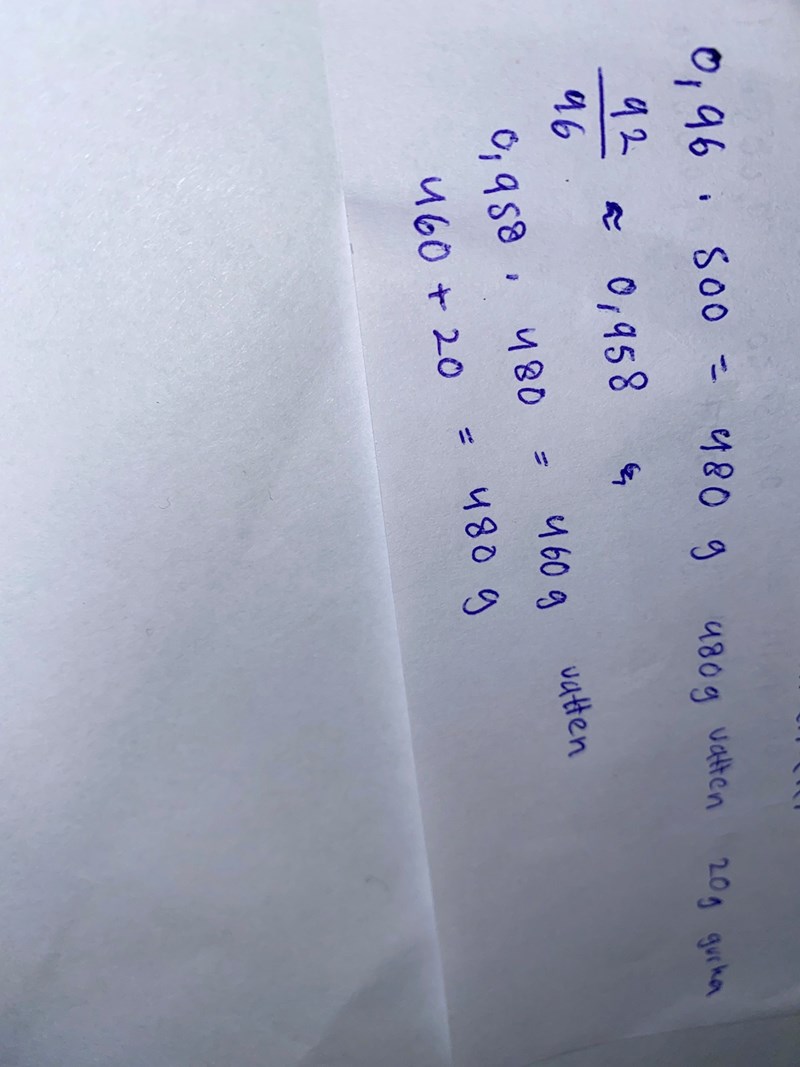 0,96 · 500 = 480 g 480g vatten 20g gurka
92
96 ≈ 0,958
0,958 · 480 = 460 g vatten
460 + 20 = 480 g